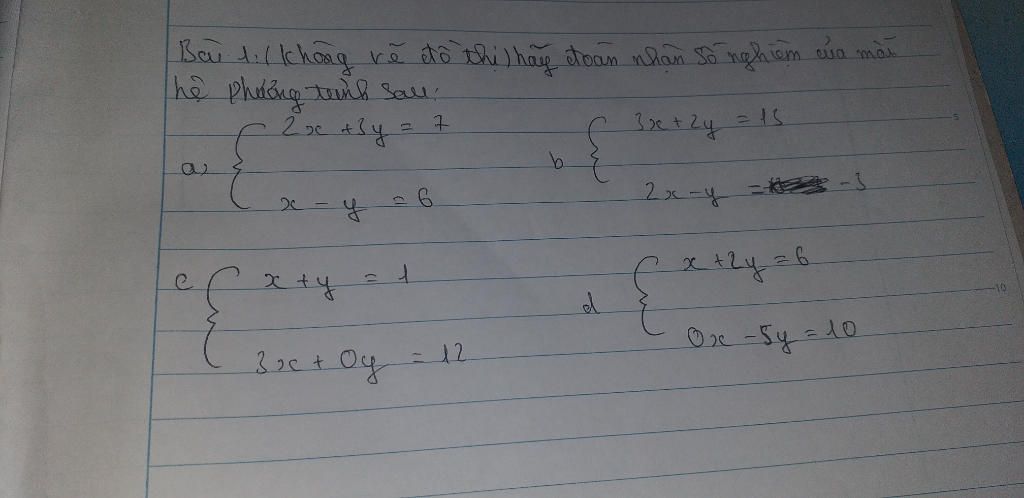 Bài 1: (không vẽ đồ thị) hãy đoán nhận số nghiệm của mỗi
hệ phương trình sau:
a) { 2x + 3y = 7
x - y = 6
b { 3x + 2y = 13
2x - y = -3
c { x + y = 1
3x + 0y = 12
d { x + 2y = 6
0x - 5y = 10
5
10